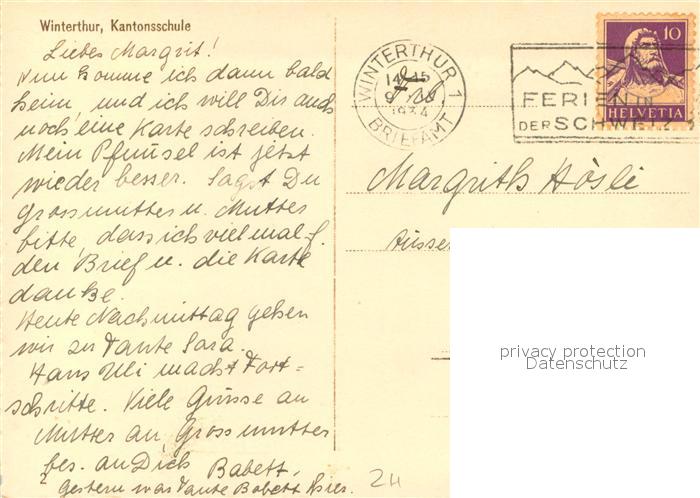 Winterthur, Kantonsschule
Liebes Margrit!
Nun komme ich dann bald
heim, und ich will Dir auch
noch eine Karte schreiben.
Mein Pfnüsel ist jetzt
wieder besser. Sagst Du
Grossmutter u. Mutter
bitte, dass ich vielmal f.
den Brief u. die Karte
danke.
Heute Nachmittag gehen
wir zu Tante Sara.
Hans Uli macht Fort=
schritte. Viele Grüsse an
Mutter an Grossmutter
bes. an Dich Babett.
Gestern war Tante Babett hier.
WINTERTHUR 1
1934
BRIEFAMT
FERIEN IN
DER SCHWEIZ
10
HELVETIA
Margrith Hösli
Ausser
privacy protection
Datenschutz
24